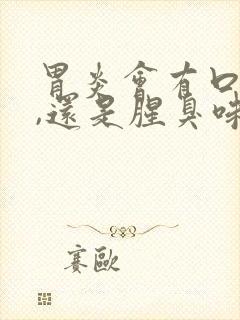 胃炎會有口
,還是腥臭味
賽歐